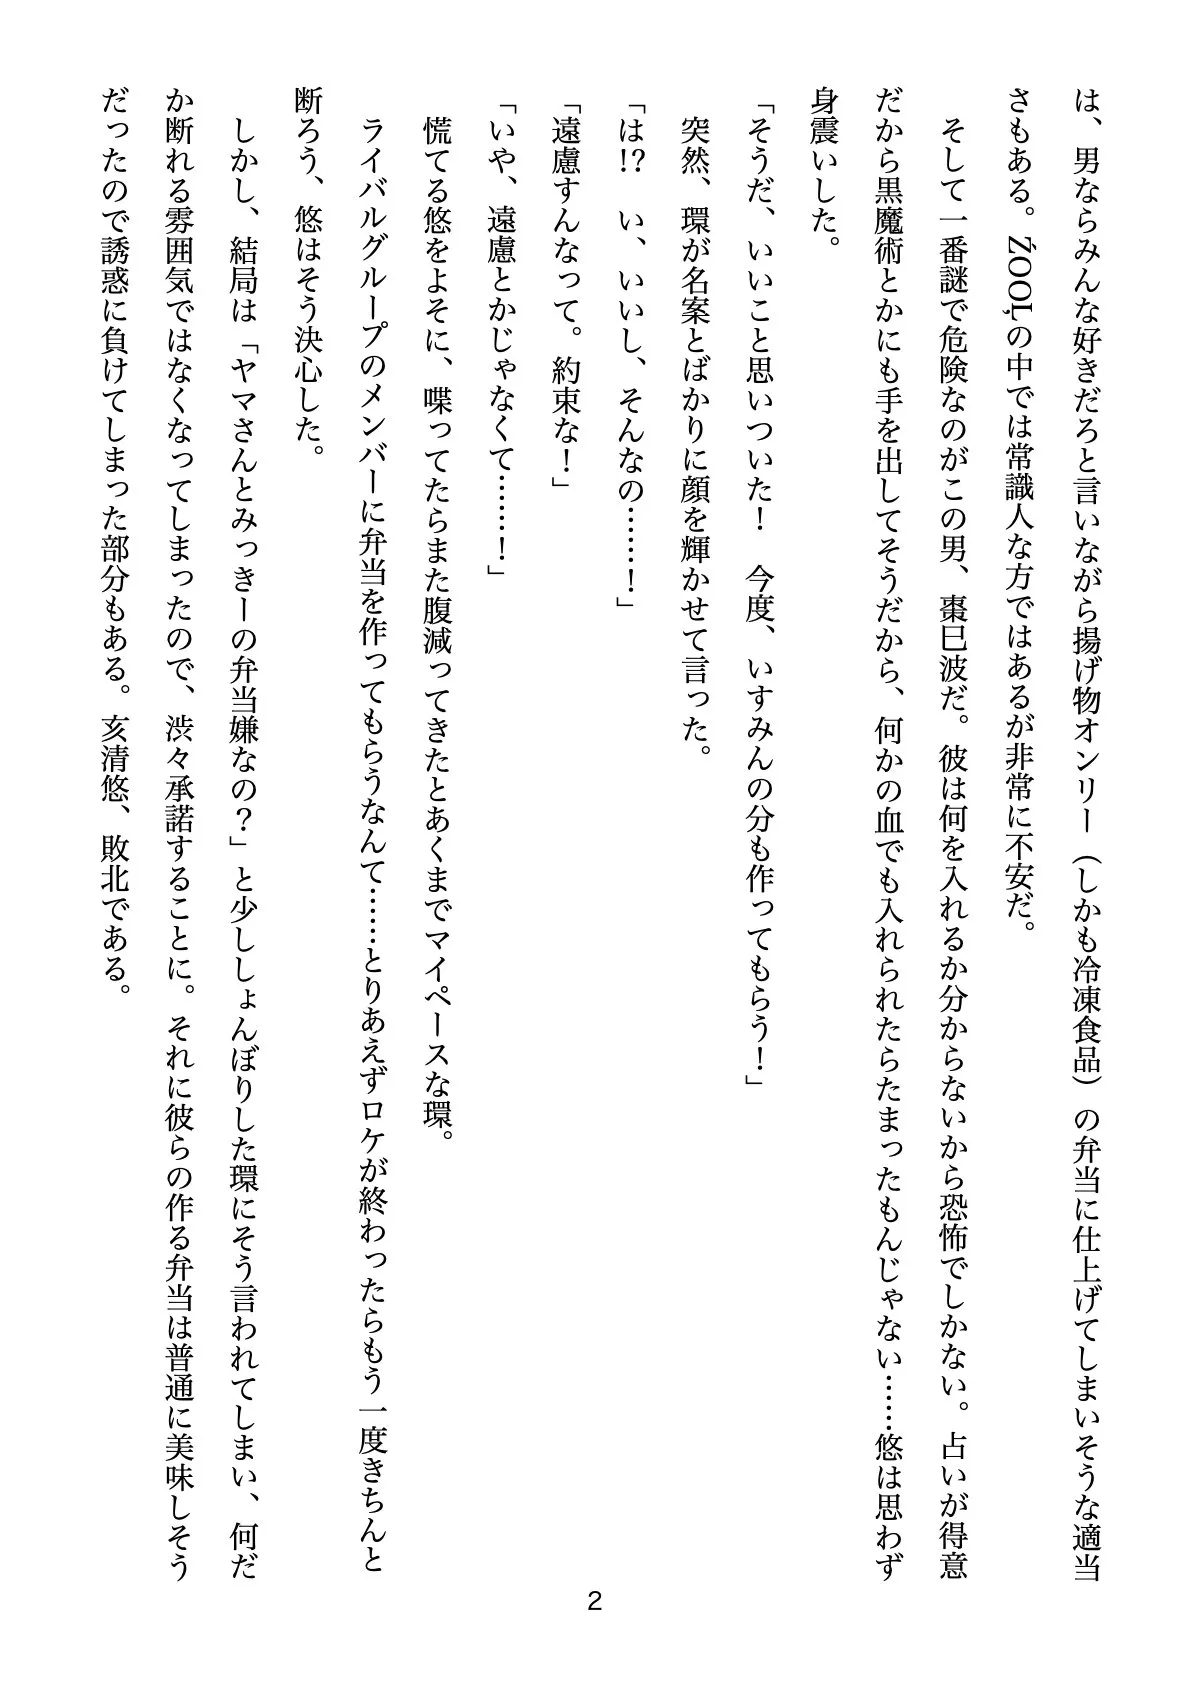 は、男ならみんな好きだろと言いながら揚げ物オンリー（しかも冷凍食品）の弁当に仕上げてしまいそうな適当
さもある。ŹOOĻの中では常識人な方ではあるが非常に不安だ。
　そして一番謎で危険なのがこの男、棗巳波だ。彼は何を入れるか分からないから恐怖でしかない。占いが得意
だから黒魔術とかにも手を出してそうだから、何かの血でも入れられたらたまったもんじゃない……悠は思わず
身震いした。
「そうだ、いいこと思いついた！　今度、いすみんの分も作ってもらう！」
　突然、環が名案とばかりに顔を輝かせて言った。
「は!?　い、いいし、そんなの……！」
「遠慮すんなって。約束な！」
「いや、遠慮とかじゃなくて……！」
　慌てる悠をよそに、喋ってたらまた腹減ってきたとあくまでマイペースな環。
　ライバルグループのメンバーに弁当を作ってもらうなんて……とりあえずロケが終わったらもう一度きちんと
断ろう、悠はそう決心した。
　しかし、結局は「ヤマさんとみっきーの弁当嫌なの？」と少ししょんぼりした環にそう言われてしまい、何だ
か断れる雰囲気ではなくなってしまったので、渋々承諾することに。それに彼らの作る弁当は普通に美味しそう
だったので誘惑に負けてしまった部分もある。亥清悠、敗北である。
2